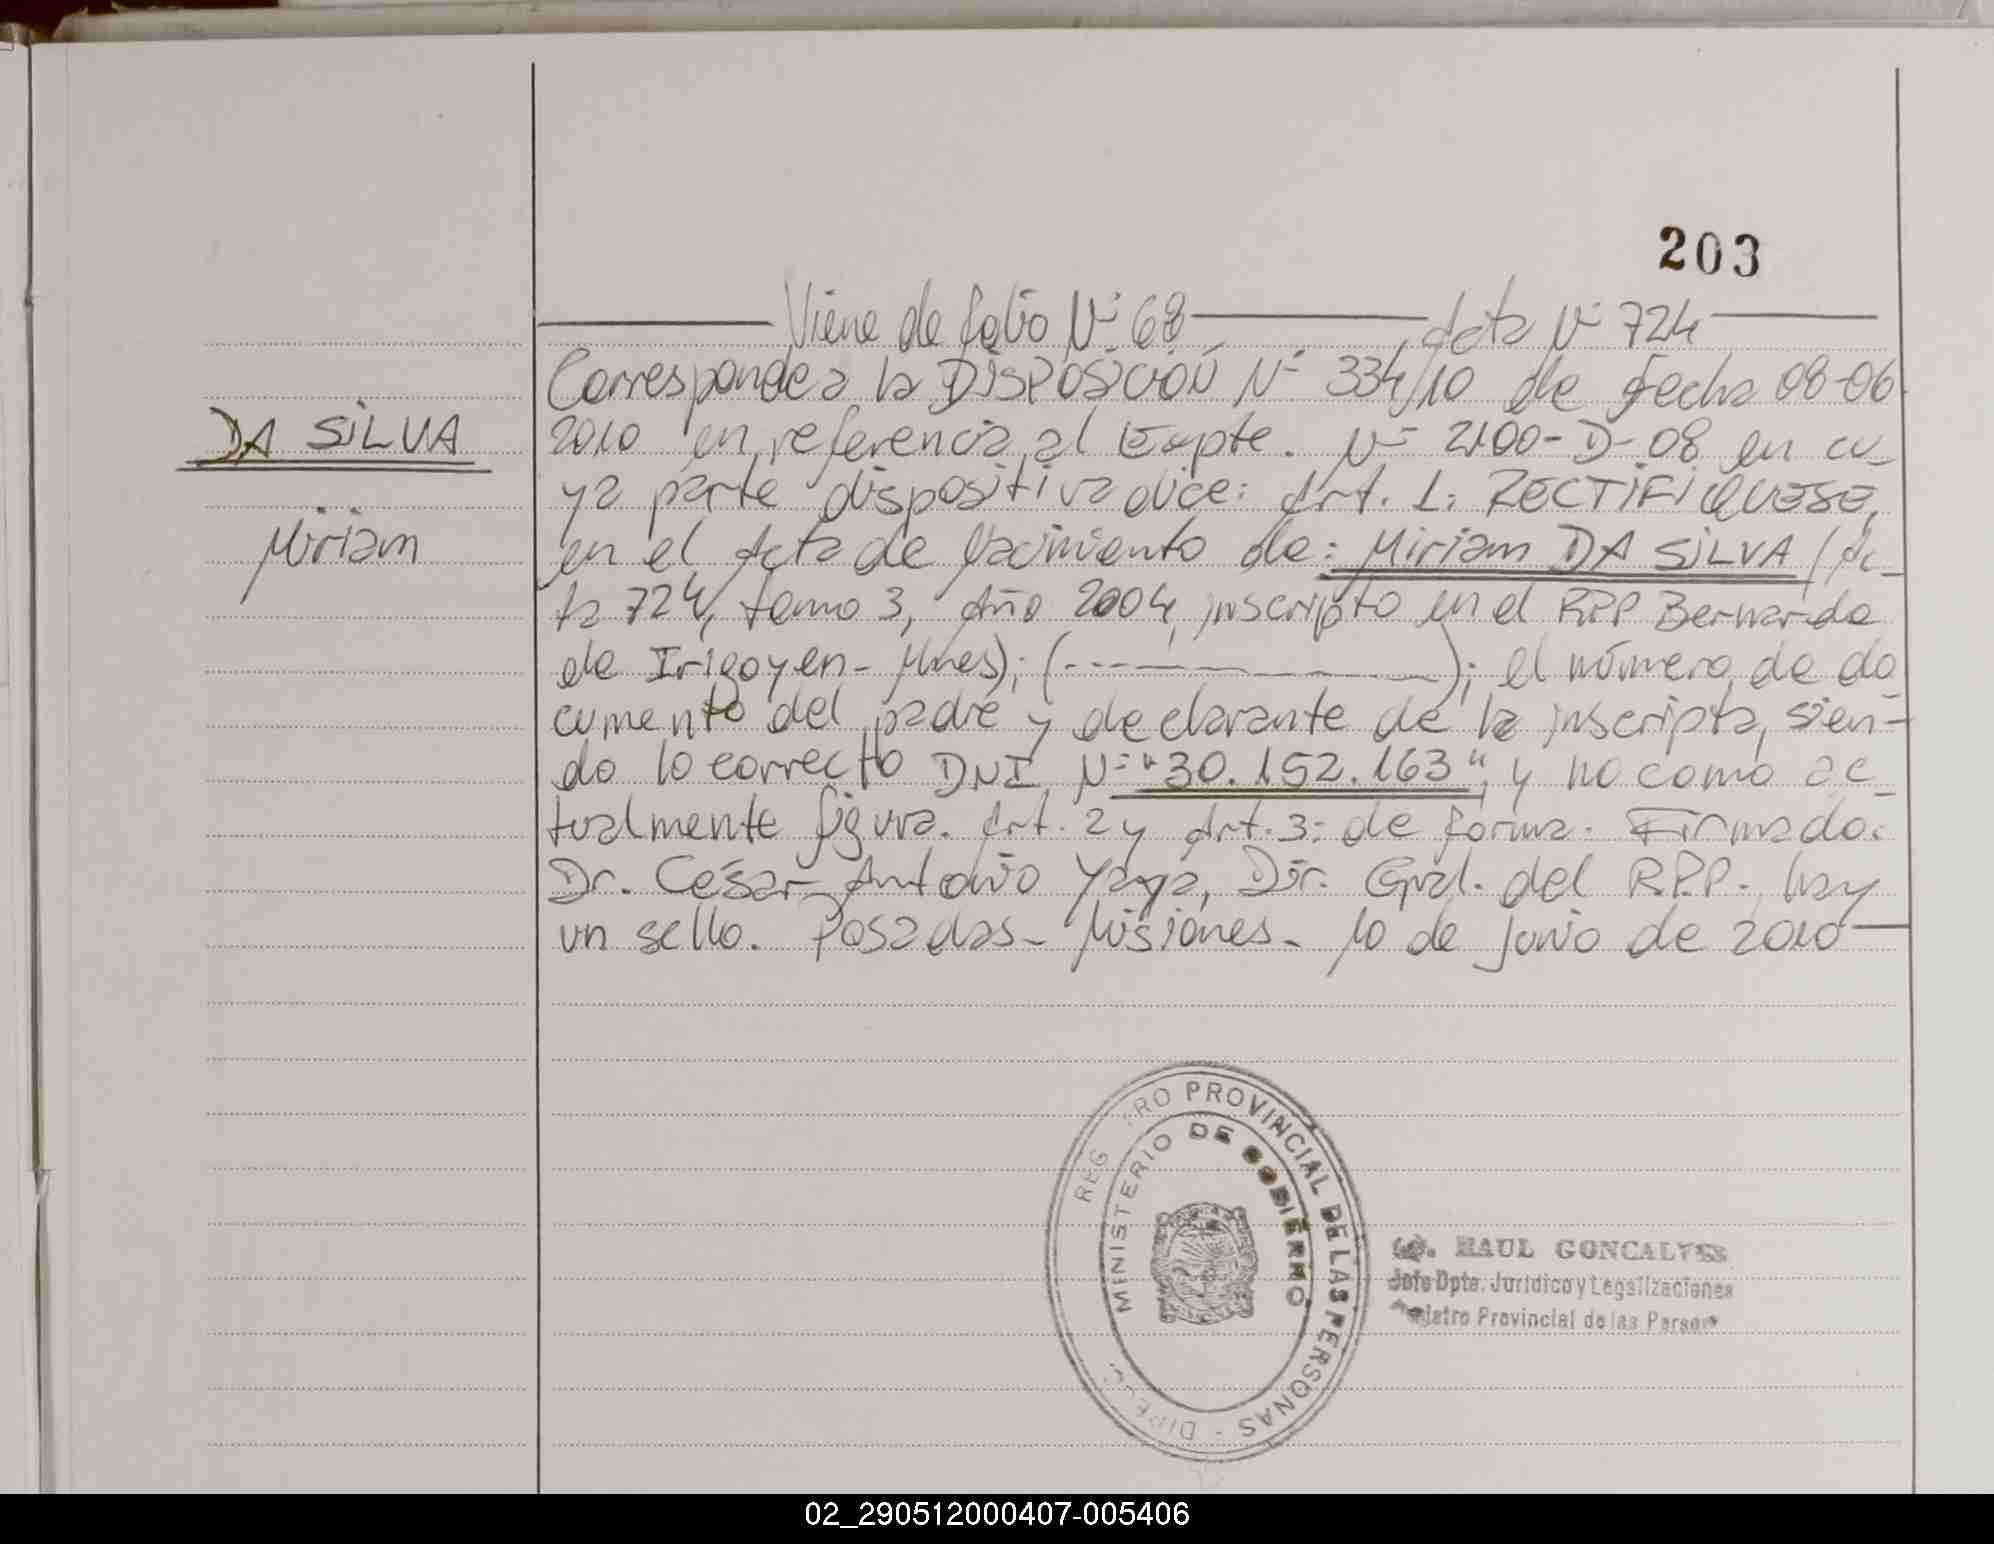 203
Viene de folio Nº 68 Acta Nº 724
Corresponde a la DISPOSICIÓN Nº 334/10 de fecha 08-06
DA SILVA
2010 en referencia al Expte. Nº 2100-D-08 en cu-
ya parte dispositiva dice: Art. 1: RECTIFIQUESE,
Miriam
en el Acta de Nacimiento de: Miriam DA SILVA (Ac-
ta 724, tomo 3, Año 2004, inscripto en el RPP Bernardo
de Irigoyen - Mnes); (----------); el número de do
cumento del padre y declarante de la inscripta, sien-
do lo correcto DNI Nº "30.152.163", y no como ac-
tualmente figura. Art. 2 y Art. 3: de forma. Firmado.
Dr. César Antonio Yaya, Dir. Gral. del R.P.P. hay
un sello. Posadas - Misiones - 10 de junio de 2010
REG TRO PROVINCIAL DE LAS PERSONAS - DIREC
MINISTERIO DE GOBIERNO
RAUL GONCALVES
Jefe Dpto. Jurídico y Legalizaciones
istro Provincial de las Person
02_290512000407-005406